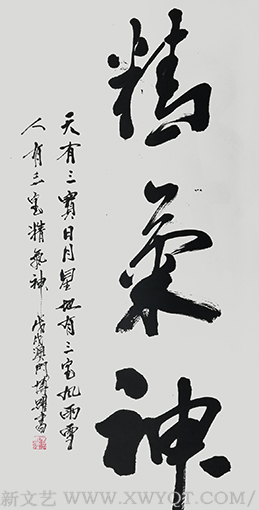 精氣神
天有三寶日月星地有三宝风雨雪
人有三宝精氣神 戊戌澳門博躍書
新文艺 WWW.XWYQT.COM/